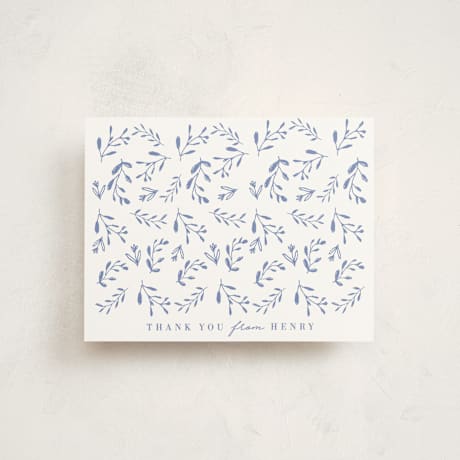 THANK YOU from HENRY